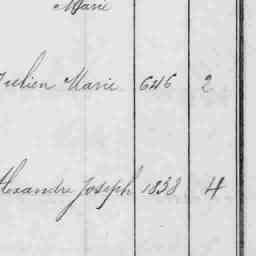 Marie
Julien Marie 646 2
Alexandre Joseph 1838 4